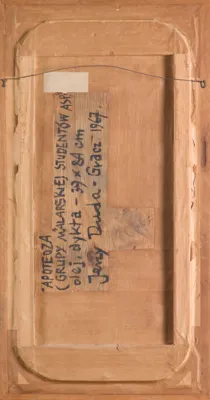 "APOTEOZA
(GRUPY MALARSKIEJ STUDENTÓW ASP)
olej, dykta - 39 x 84 cm
Jerzy Duda-Gracz 1967.